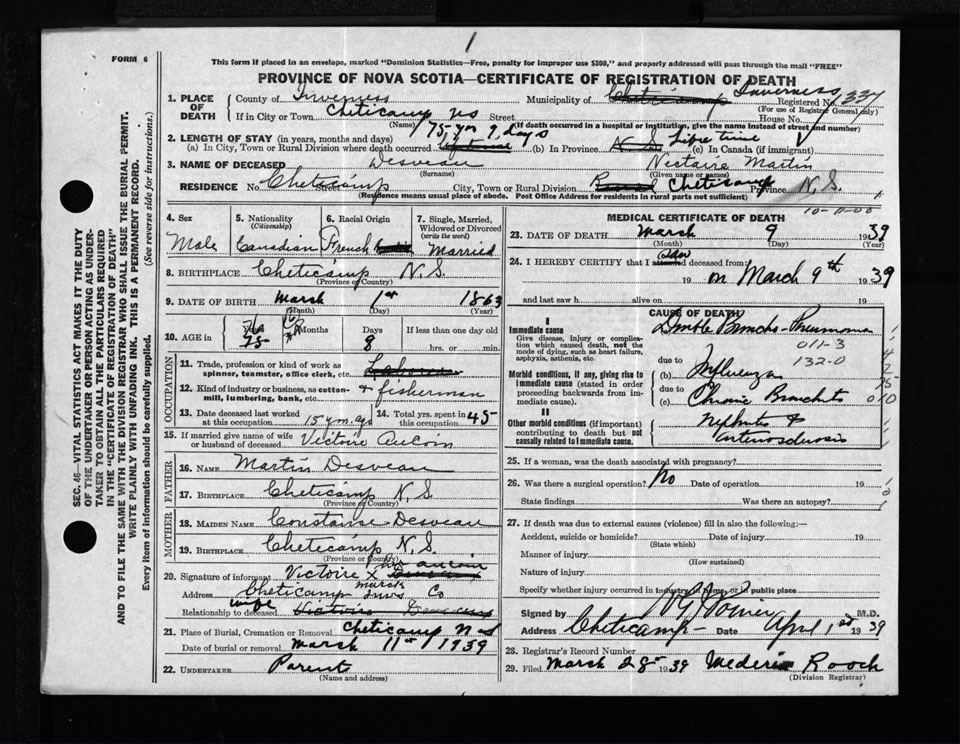 1
FORM 6
This form if placed in an envelope, marked "Dominion Statistics—Free, penalty for improper use $300," and properly addressed will pass through the mail "FREE"
PROVINCE OF NOVA SCOTIA—CERTIFICATE OF REGISTRATION OF DEATH
SEC. 46—VITAL STATISTICS ACT MAKES IT THE DUTY
OF THE UNDERTAKER OR PERSON ACTING AS UNDER-
TAKER TO OBTAIN ALL THE PARTICULARS REQUIRED
IN THE "CERTIFICATE OF REGISTRATION OF DEATH"
AND TO FILE THE SAME WITH THE DIVISION REGISTRAR WHO SHALL ISSUE THE BURIAL PERMIT.
WRITE PLAINLY WITH UNFADING INK. THIS IS A PERMANENT RECORD.
Every item of information should be carefully supplied. (See reverse side for instructions.)
1. PLACE OF DEATH County of Inverness Municipality of Cheticamp Inverness Registered No. 337
(For use of Registrar General only)
If in City or Town Cheticamp NS Street House No.
(Name) (If death occurred in a hospital or institution, give the name instead of street and number)
2. LENGTH OF STAY (in years, months and days) 75 yr 9 days
(a) In City, Town or Rural Division where death occurred (b) In Province N S Life time (c) In Canada (if immigrant)
3. NAME OF DECEASED Desveau Nectaire Martin
(Surname) (Given name or names)
RESIDENCE No. Cheticamp Street City, Town or Rural Division Cheticamp Province N. S.
(Residence means usual place of abode. Post Office Address for residents in rural parts not sufficient)
4. Sex Male
5. Nationality (Citizenship) Canadian
6. Racial Origin French
7. Single, Married, Widowed or Divorced (write the word) Married
8. BIRTHPLACE Cheticamp N. S.
(Province or Country)
9. DATE OF BIRTH March 1st 1863
(Month) (Day) (Year)
10. AGE in 75 Months Days 8 If less than one day old
hrs. or min.
OCCUPATION
11. Trade, profession or kind of work as spinner, teamster, office clerk, etc. Laborer
12. Kind of industry or business, as cotton-mill, lumbering, bank, etc. + fisherman
13. Date deceased last worked at this occupation 15 yrs. ago
14. Total yrs. spent in this occupation 45
15. If married give name of wife or husband of deceased Victoire AuCoin
FATHER
16. NAME Martin Desveau
17. BIRTHPLACE Cheticamp N. S.
(Province or Country)
MOTHER
18. MAIDEN NAME Constanse Desveau
19. BIRTHPLACE Cheticamp N. S.
(Province or Country)
20. Signature of informant Victoire x her mark aucoin
Address Cheticamp Invs Co
Relationship to deceased wife Victoire
21. Place of Burial, Cremation or Removal Cheticamp N S
Date of burial or removal March 11st 1939
22. UNDERTAKER Parent
(Name and address)
10-11-00
MEDICAL CERTIFICATE OF DEATH
23. DATE OF DEATH March 9 1939
(Month) (Day) (Year)
24. I HEREBY CERTIFY that I attended saw deceased from:
19 on March 9th 1939
and last saw h alive on 19
CAUSE OF DEATH
I
Immediate cause
Give disease, injury or complication which caused death, not the mode of dying, such as heart failure, asphyxia, asthenia, etc.
Double Broncho-Pneumonia
011-3
132-0
due to
Morbid conditions, if any, giving rise to immediate cause (stated in order proceeding backwards from immediate cause).
(b) Influenza
due to
(c) Chronic Bronchitis
II
Other morbid conditions (if important) contributing to death but not causally related to immediate cause.
Nephritis &
Arteriosclerosis
25. If a woman, was the death associated with pregnancy?
26. Was there a surgical operation? No Date of operation 19
State findings Was there an autopsy?
27. If death was due to external causes (violence) fill in also the following:—
Accident, suicide or homicide? Date of injury 19
(State which)
Manner of injury
(How sustained)
Nature of injury
Specify whether injury occurred in industry, in home, or in public place
Signed by Poirier M.D.
Address Cheticamp Date April 1st 1939
28. Registrar's Record Number
29. Filed March 28st 1939 Mederic Rooch
(Division Registrar)